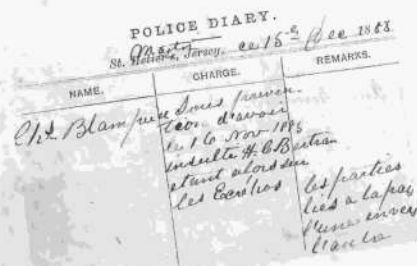 POLICE DIARY.
St. Helier's, Jersey, ce 15 Dec 188
NAME.
CHARGE.
REMARKS.
Blampied Sous préven-
tion d'avoir
le 16 Nov 1886
insulté H. C. Bertram
étant alors sur
les
les parties
liés a la paix
l'une envers
l'autre